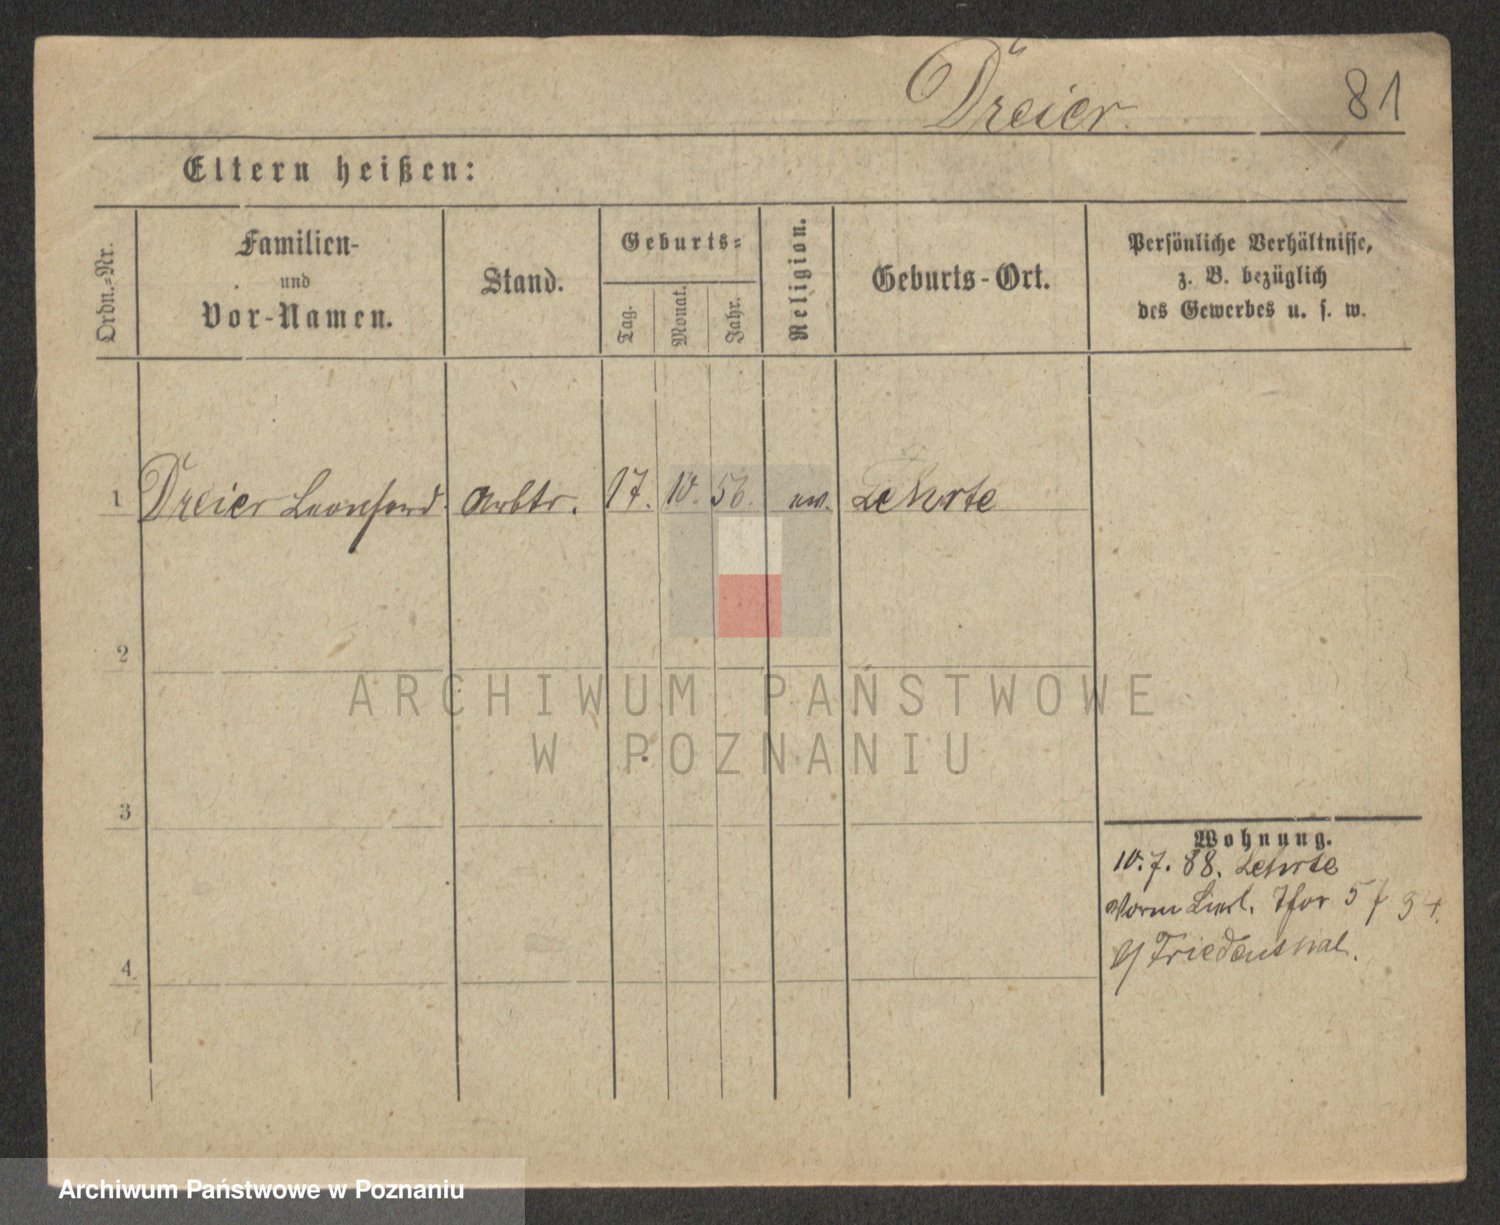 Dreier.
81
Eltern heißen:
Ordn.-Nr.
Familien-
und
Vor-Namen.
Stand.
Geburts-
Tag.
Monat.
Jahr.
Religion.
Geburts-Ort.
Persönliche Verhältnisse,
z. B. bezüglich
des Gewerbes u. s. w.
1 Dreier Leonhard Arbtr. 17. 10. 56. ev. Lehrte
2
3
4
Wohnung.
10. 7. 88. Lehrte
5 f 34.
Friedenthal.
ARCHIWUM PAŃSTWOWE
W POZNANIU
Archiwum Państwowe w Poznaniu